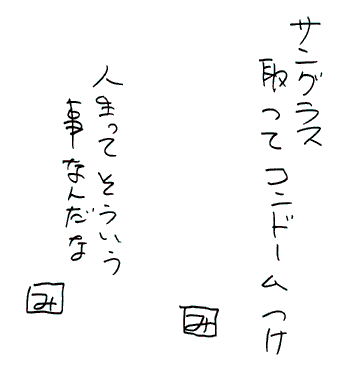 サングラス
取ってコンドームつけ
み
人生ってそういう
事なんだな
み